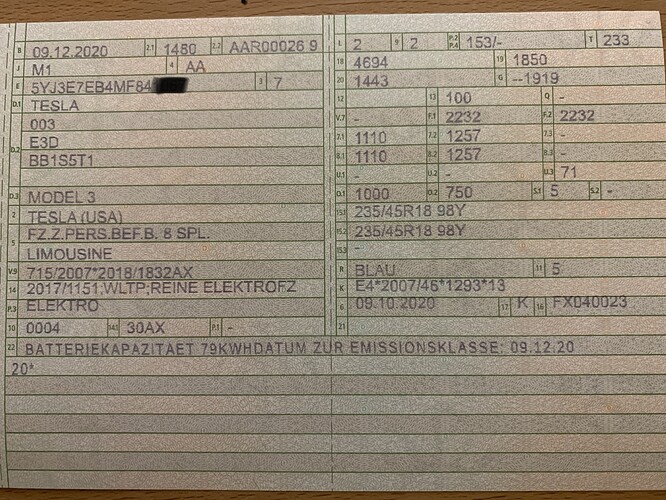 B 09.12.2020 2.1 1480 2.2 AAR00026 9
J M1 4 AA
E 5YJ3E7EB4MF84 3 7
D.1 TESLA
003
D.2 E3D
BB1S5T1
D.3 MODEL 3
2 TESLA (USA)
5 FZ.Z.PERS.BEF.B. 8 SPL.
LIMOUSINE
V.9 715/2007*2018/1832AX
14 2017/1151;WLTP;REINE ELEKTROFZ
P.3 ELEKTRO
10 0004 14.1 30AX P.1 -
L 2 9 2 P.2 P.4 153/- T 233
18 4694 19 1850
20 1443 G --1919
12 13 100 Q -
V.7 - F.1 2232 F.2 2232
7.1 1110 7.2 1257 7.3 -
8.1 1110 8.2 1257 8.3 -
U.1 - U.2 - U.3 71
O.1 1000 O.2 750 S.1 5 S.2 -
15.1 235/45R18 98Y
15.2 235/45R18 98Y
15.3 -
R BLAU 11 5
K E4*2007/46*1293*13
6 09.10.2020 17 K 16 FX040023
21
22 BATTERIEKAPAZITAET 79KWHDATUM ZUR EMISSIONSKLASSE: 09.12.20
20*